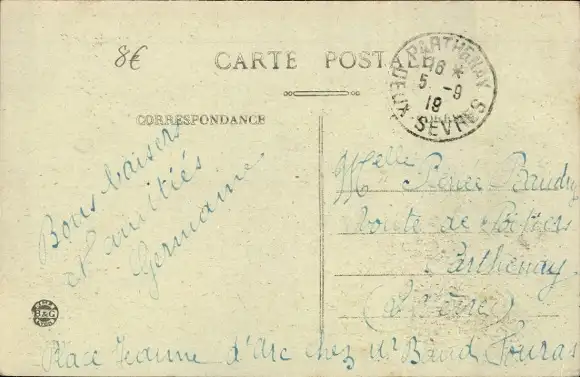 8€
CARTE POSTALE
PARTHENAY
16 *
5 - 9
19
DEUX SEVRES
CORRESPONDANCE
Bons baisers
et amitiés
Germaine
Melle Renée Baudry
route de Poitiers
Parthenay
B&G
Place Jeanne d'Arc chez Mr Baud Fouras